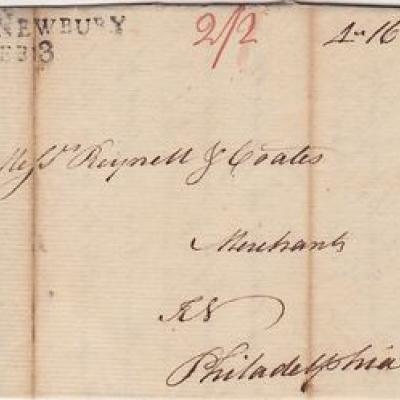 NEWBURY 2/2 1 16
FE 3
Messrs Reynell & Coates
Merchants
In
Philadelphia